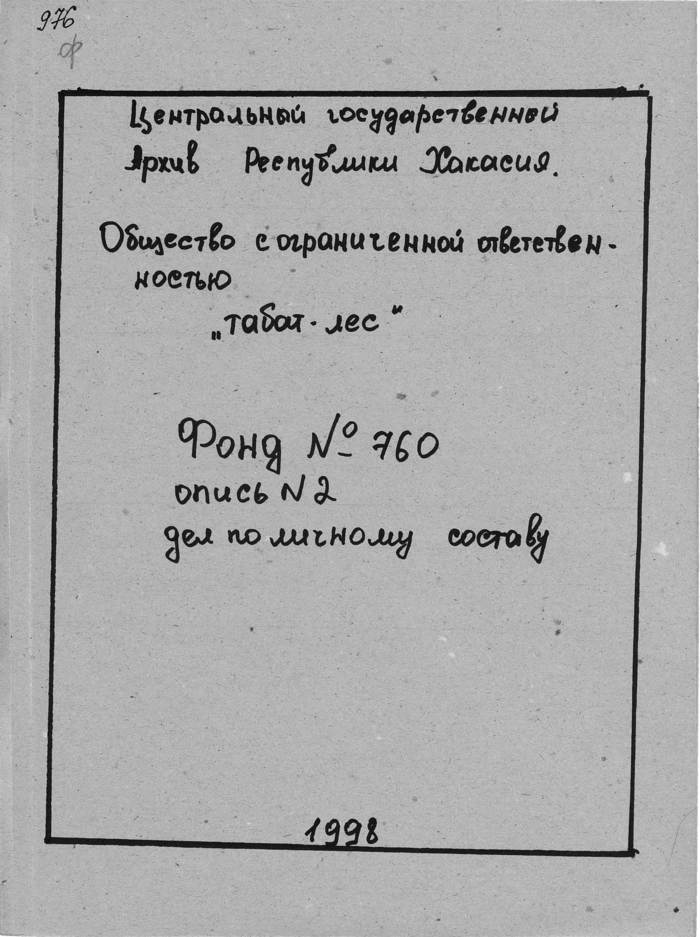 976
ф
Центральный государственный
Архив Республики Хакасия.
Общество с ограниченной ответствен-
ностью
„табат-лес“
Фонд № 760
опись N 2
дел по личному составу
1998